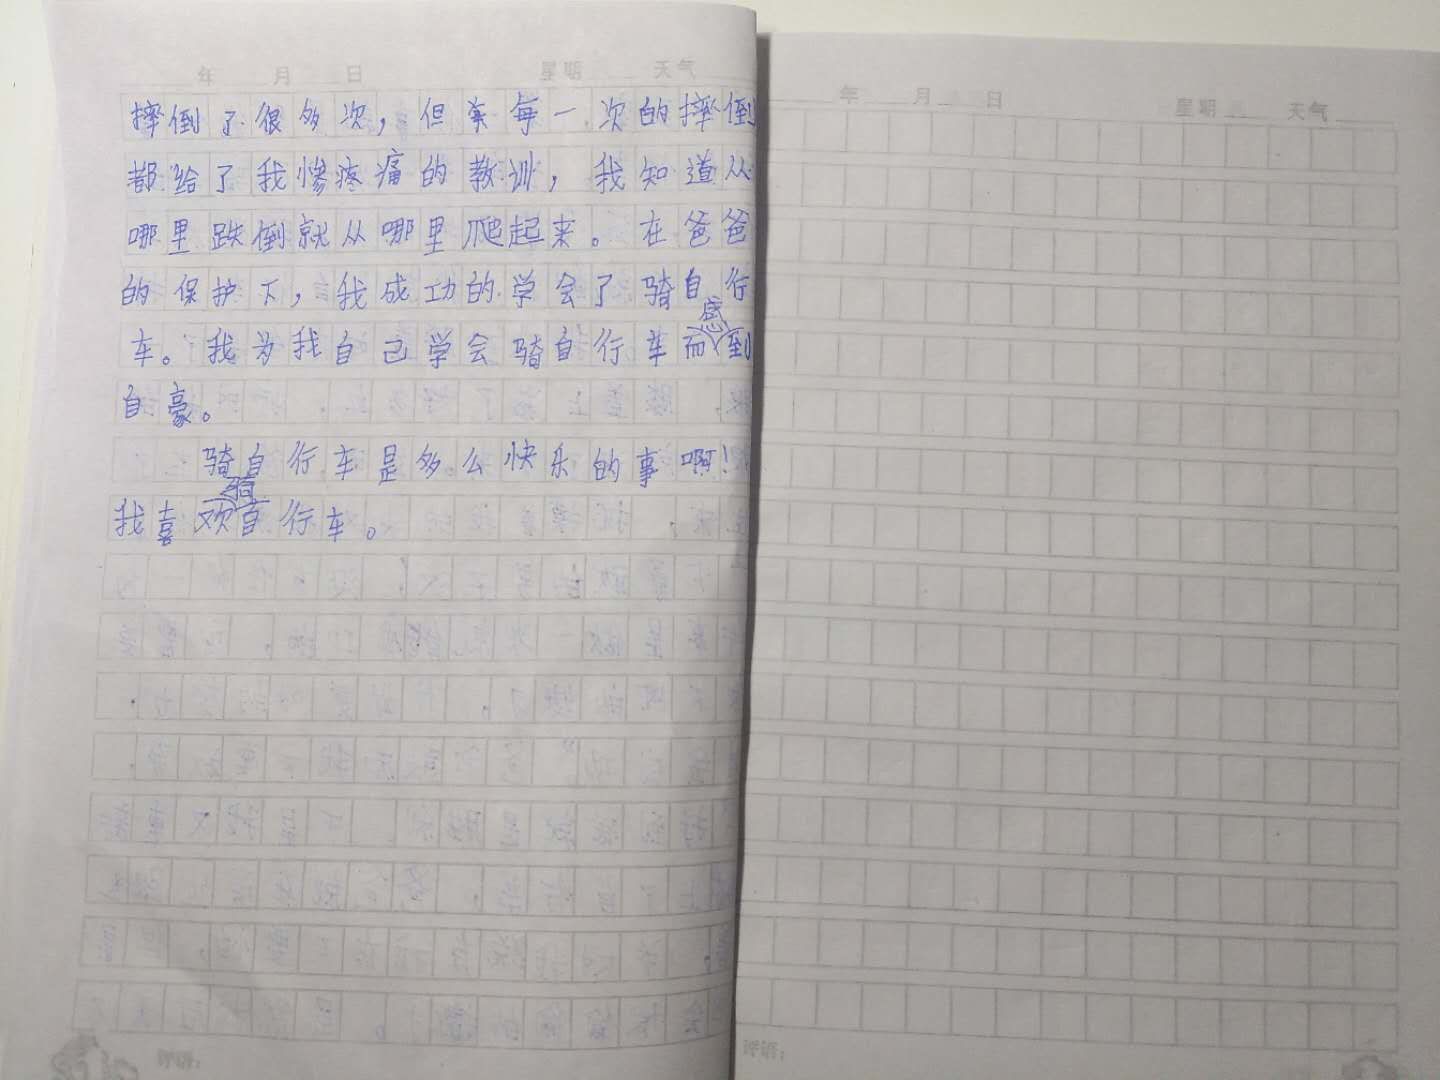 年 月 日 星期 天气
摔倒了很多次，但每一次的摔倒
都给了我惨疼痛的教训，我知道从
哪里跌倒就从哪里爬起来。在爸爸
的保护下，我成功的学会了骑自行
车。我为我自己学会骑自行车而感到
自豪。
骑自行车是多么快乐的事啊！
我喜欢骑自行车。
评语：
年 月 日 星期 天气
评语：